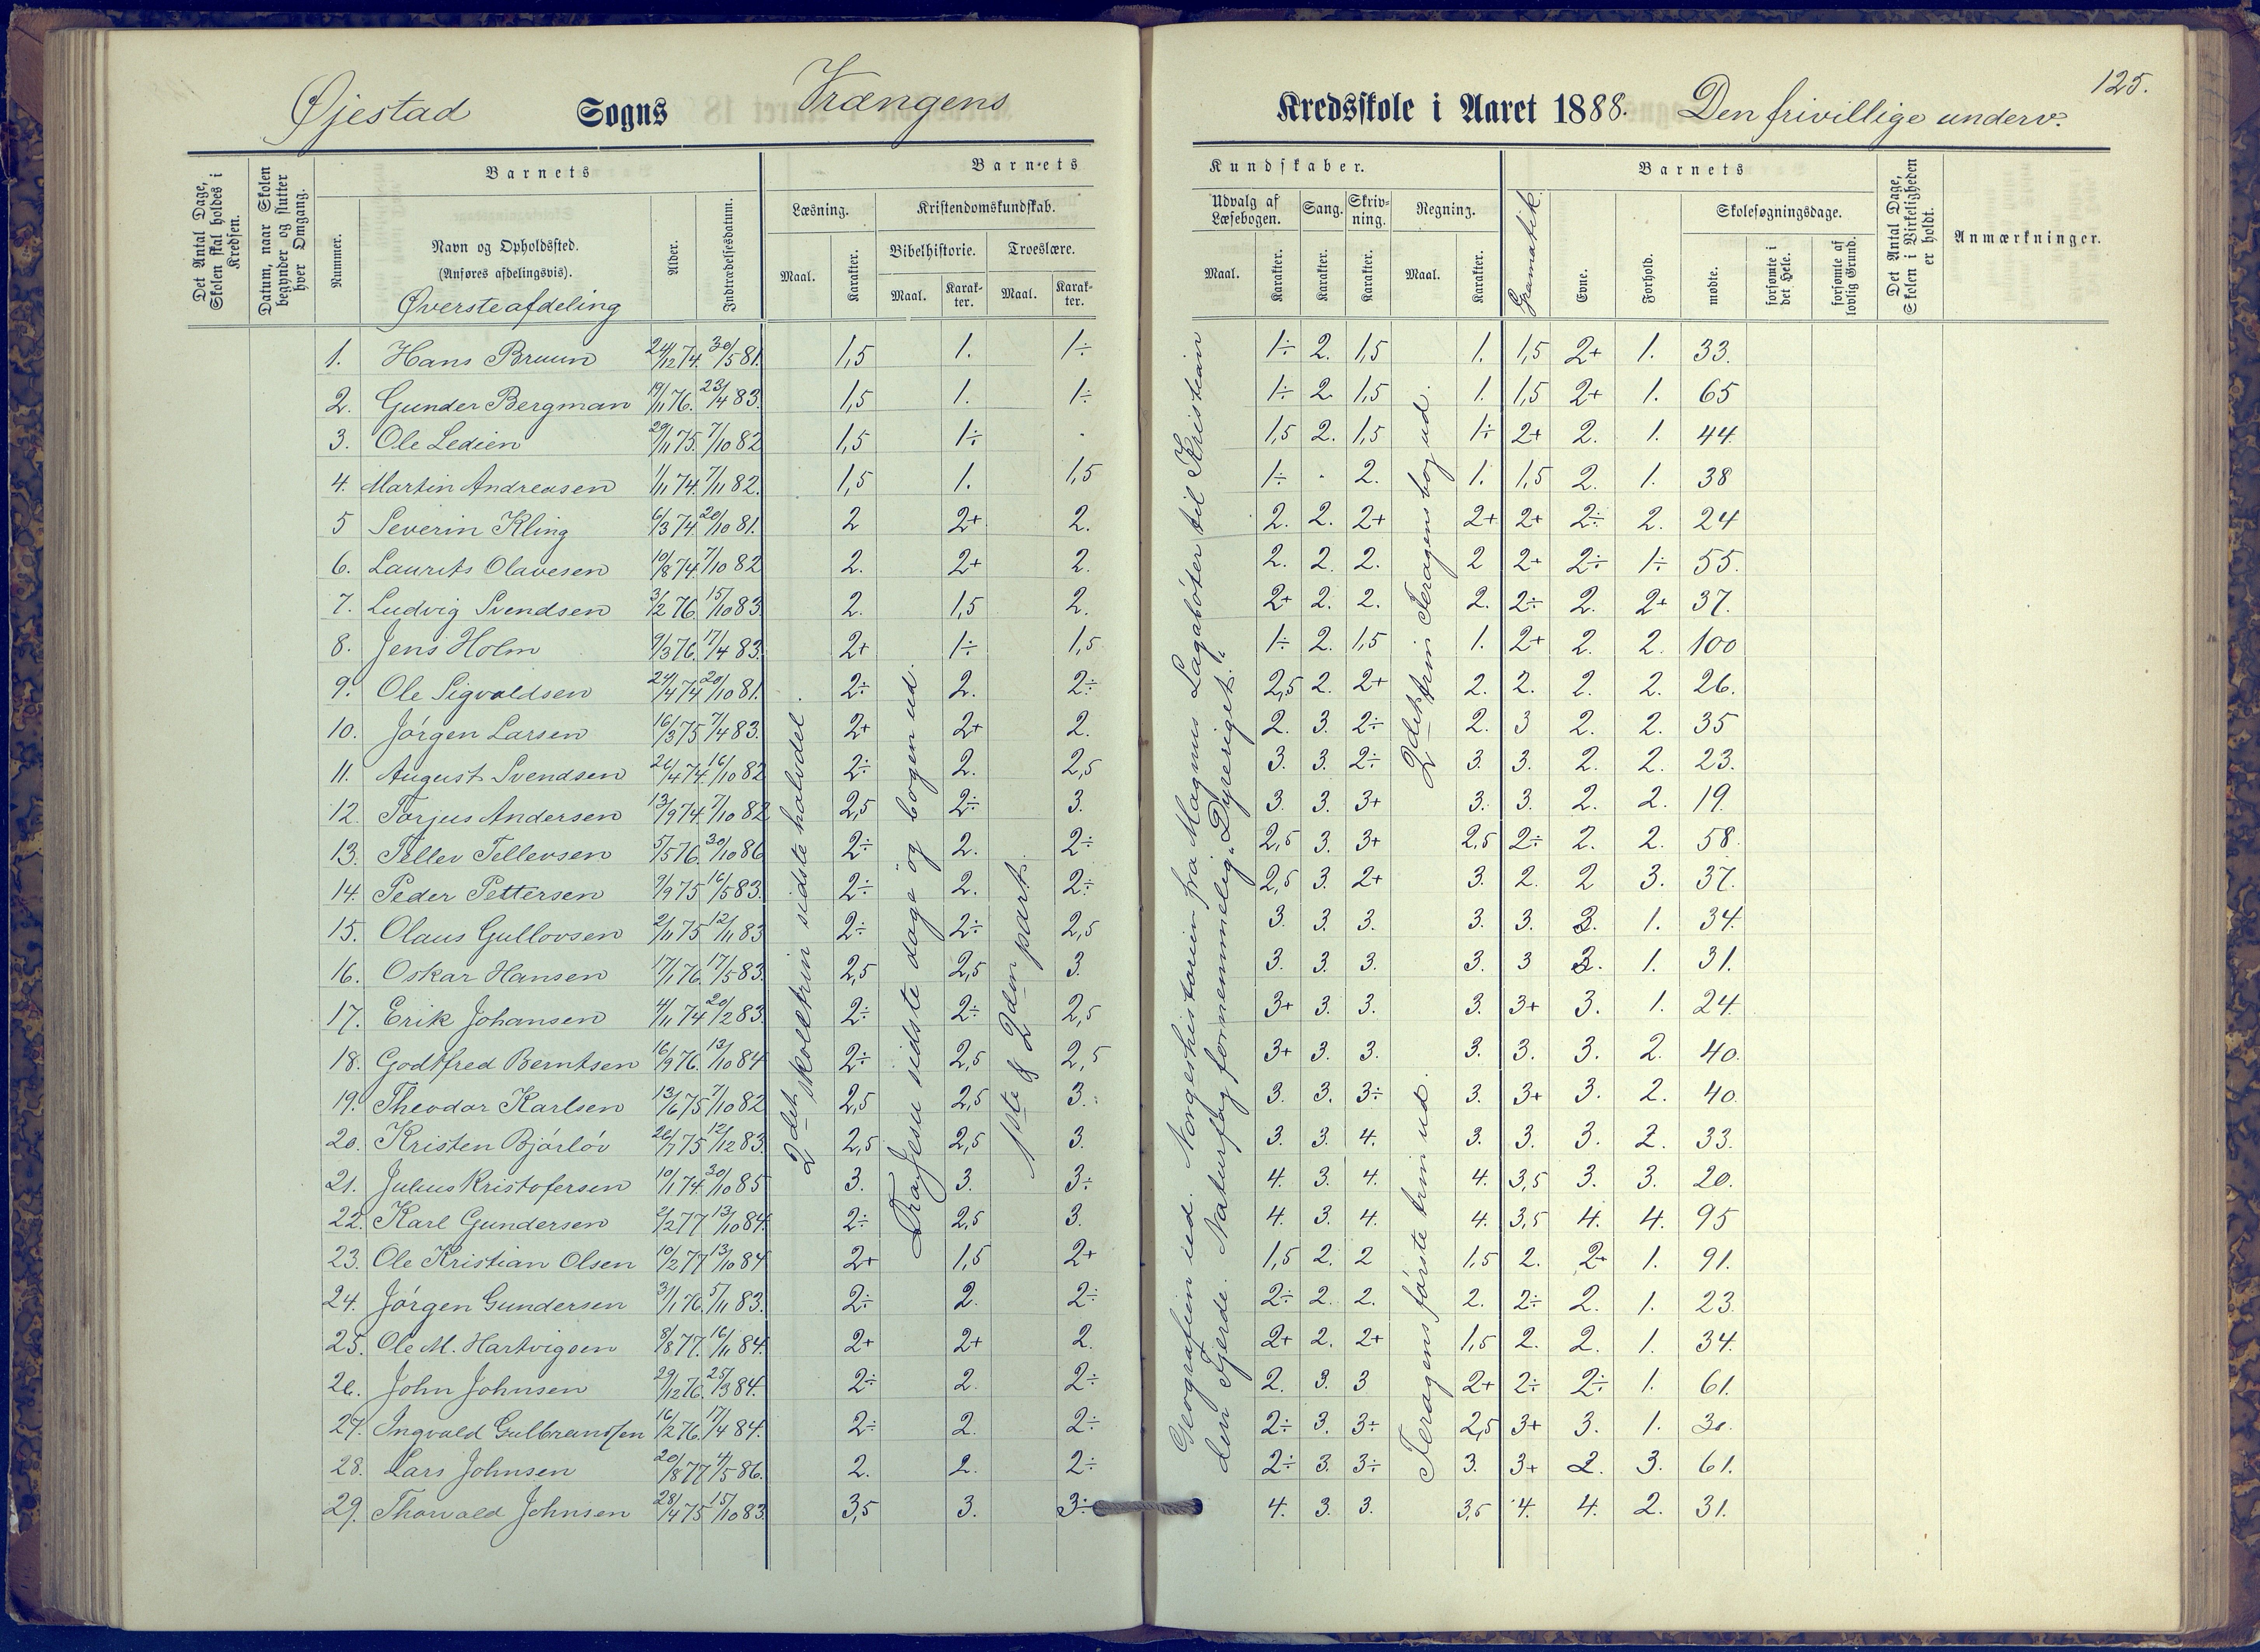 125.
Øjestad Sogns Vrængens Kredsskole i Aaret 1888. Den frivillige underv.
Det Antal Dage, Skolen skal holdes i Kredsen.
Datum, naar Skolen begynder og slutter hver Omgang.
Barnets
Nummer.
Navn og Opholdssted.
(Anføres afdelingsvis).
Øverste afdeling
Alder.
Indtrædelsesdatum.
Barnets
Læsning.
Maal.
Karakter.
Kristendomskundskab.
Bibelhistorie.
Maal.
Karakter.
Troeslære.
Maal.
Karakter.
Kundskaber.
Udvalg af Læsebogen.
Maal.
Karakter.
Sang.
Karakter.
Skrivning.
Karakter.
Regning.
Maal.
Karakter.
Gramatik.
Barnets
Evne.
Forhold.
Skolesøgningsdage.
mødte.
forsømte i det Hele.
forsømte af lovlig Grund.
Det Antal Dage, Skolen i Virkeligheden er holdt.
Anmærkninger.
1. Hans Bruun 24/12 74. 30/5 81. 1,5 1. 1÷ 1÷ 2. 1,5 1. 1,5 2+ 1. 33.
2. Gunder Bergman 19/11 76. 23/4 83. 1,5 1. 1÷ 1÷ 2. 1,5 1. 1,5 2+ 1. 65
3. Ole Ledien 29/11 75. 7/10 82 1,5 1÷ . 1,5 2. 1,5 1÷ 2+ 2. 1. 44.
4. Martin Andreasen 1/11 74. 7/11 82. 1,5 1. 1,5 1÷ . 2. 1. 1,5 2. 1. 38
5 Severin Kling 6/3 74. 20/10 81. 2 2+ 2. 2. 2. 2+ 2+ 2+ 2÷ 2. 24
6. Laurits Olavesen 10/8 74. 7/10 82 2. 2+ 2. 2. 2. 2. 2 2+ 2÷ 1÷ 55.
7. Ludvig Svendsen 3/2 76. 15/10 83 2. 1,5 2. 2+ 2. 2. 2. 2÷ 2. 2+ 37.
8. Jens Holm 9/3 76. 17/4 83. 2+ 1÷ 1,5 1÷ 2. 1,5 1. 2+ 2. 2. 100
9. Ole Sigvaldsen 24/4 74. 20/10 81. 2÷ 2. 2÷ 2,5 2. 2+ 2. 2. 2. 2. 26.
10. Jörgen Larsen 16/3 75 7/4 83. 2+ 2+ 2. 2. 3. 2÷ 2. 3 2. 2. 35
11. August Svendsen 26/4 74. 16/10 82 2÷ 2. 2,5 3. 3. 2÷ 3. 3. 2. 2. 23.
12. Torjus Andersen 13/9 74. 7/10 82 2,5 2÷ 3. 3. 3. 3+ 3. 3. 2. 2. 19.
13. Tellev Tellevsen 5/5 76. 30/10 86 2÷ 2. 2÷ 2,5 3. 3+ 2,5 2÷ 2. 2. 58.
14. Peder Pettersen 9/9 75 16/5 83. 2÷ 2. 2÷ 2,5 3. 2+ 3. 2. 2 3. 37.
15. Olaus Gullovsen 2/11 75 12/11 83 2÷ 2÷ 2,5 3. 3. 3. 3. 3. 3. 1. 34.
16. Oskar Hansen 17/1 76. 17/5 83. 2,5 2,5 3. 3. 3. 3. 3. 3 3. 1. 31.
17. Erik Johansen 4/11 74 20/2 83. 2÷ 2÷ 2,5 3+ 3. 3. 3. 3+ 3. 1. 24.
18. Godtfred Berntsen 16/9 76. 13/10 84 2÷ 2,5 2,5 3+ 3. 3. 3. 3. 3. 2. 40.
19. Theodor Karlsen 13/6 75 7/10 82 2,5 2,5 3. 3. 3. 3÷ 3. 3+ 3. 2. 40.
20. Kristen Bjórlöv 26/7 75 12/12 83. 2,5 2,5 3. 3. 3. 4. 3. 3. 3. 2. 33.
21. Julius Kristofersen 10/1 74. 30/10 85 3. 3. 3÷ 4. 3. 4. 4. 3,5 3. 3. 20.
22. Karl Gundersen 2/2 77 13/10 84. 2÷ 2,5 3. 4. 3. 4. 4. 3,5 4. 4. 95
23. Ole Kristian Olsen 10/2 77 13/10 84 2+ 1,5 2+ 1,5 2. 2 1,5 2. 2+ 1. 91.
24. Jörgen Gundersen 31/1 76. 5/11 83. 2÷ 2. 2÷ 2÷ 2. 2. 2. 2÷ 2. 1. 23.
25. Ole M. Hartvigsen 8/8 77. 16/11 84. 2+ 2+ 2. 2+ 2. 2+ 1,5 2. 2. 1. 34.
26. John Johnsen 29/12 76. 25/3 84. 2÷ 2. 2÷ 2. 3. 3 2+ 2÷ 2÷ 1. 61.
27. Ingvald Gulbrandsen 16/2 76. 17/4 84. 2÷ 2. 2÷ 2÷ 3. 3÷ 2,5 3+ 3. 1. 30.
28. Lars Johnsen 20/8 77 4/5 86. 2. 2. 2÷ 2÷ 3. 3÷ 3. 3+ 2. 3. 61.
29. Thorvald Johnsen 28/4 75 15/10 83. 3,5 3. 3÷ 4. 3. 3. 3,5 4. 4. 2. 31.
2det skoletrin sidste halvdel.
Fra Jesu sidste dage og bogen ud.
1ste & 2den part.
Geografien ud. Norgeshistorien fra Magnus Lagabøter til Kristian
den Fjerde. Naturfag fornemmelig „Dyreriget."
Feragens første trin ud.
2det trin Feragens bog ud.